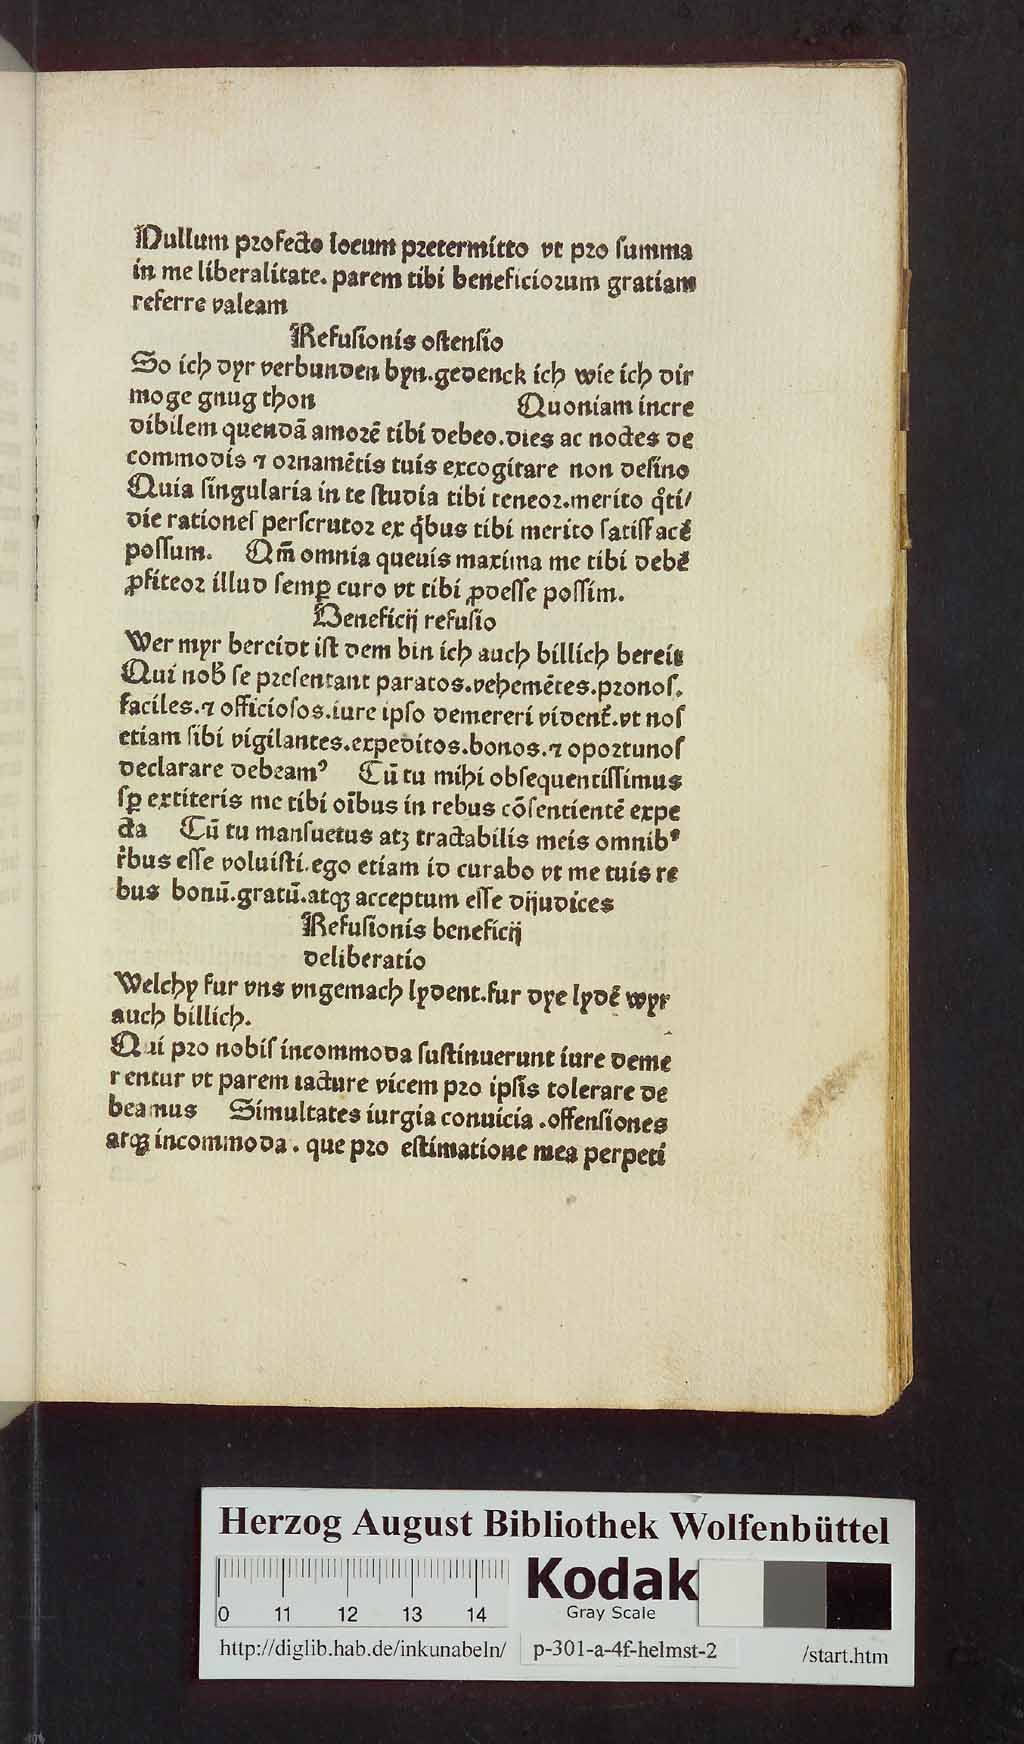 Nullum profecto locum pretermitto vt pro summa
in me liberalitate. parem tibi beneficiorum gratiam
referre valeam
Refusionis ostensio
So ich dyr verbunden byn. gedenck ich wie ich dir
moge gnug thon Quoniam incre
dibilem quendā amorē tibi debeo. dies ac noctes de
commodis ⁊ ornamētis tuis excogitare non desino
Quia singularia in te studia tibi teneor. merito qͥti/
die rationes perscrutor ex qͥbus tibi merito satiffacē
possum. Qm̄ omnia queuis maxima me tibi debē
ꝓfiteor illud semꝑ curo vt tibi ꝓdesse possim.
Beneficij refusio
Wer myr bereidt ist dem bin ich auch billich bereit
Qui nob̄ se presentant paratos. vehemētes. pronos.
faciles. ⁊ officiosos. iure ipso demereri vident̄. vt nos
etiam sibi vigilantes. expeditos. bonos. ⁊ oportunos
declarare debeamꝰ Cū tu mihi obsequentissimus
sꝑ extiteris me tibi oībus in rebus cōsentientē expe
cta Cū tu mansuetus atꝫ tractabilis meis omnibꝰ
r̄bus esse voluisti. ego etiam id curabo vt me tuis re
bus bonū. gratū. atqꝫ acceptum esse dijudices
Refusionis beneficij
deliberatio
Welchy fur vns vngemach lydent. fur dye lydē wyr
auch billich.
Qui pro nobis incommoda sustinuerunt iure deme
rentur vt parem iacture vicem pro ipsis tolerare de
beamus Simultates iurgia conuicia. offensiones
atqꝫ incommoda. que pro estimatione mea perpeti
Herzog August Bibliothek Wolfenbüttel
0 11 12 13 14
Kodak
Gray Scale
http://diglib.hab.de/inkunabeln/ p-301-a-4f-helmst-2 /start.htm